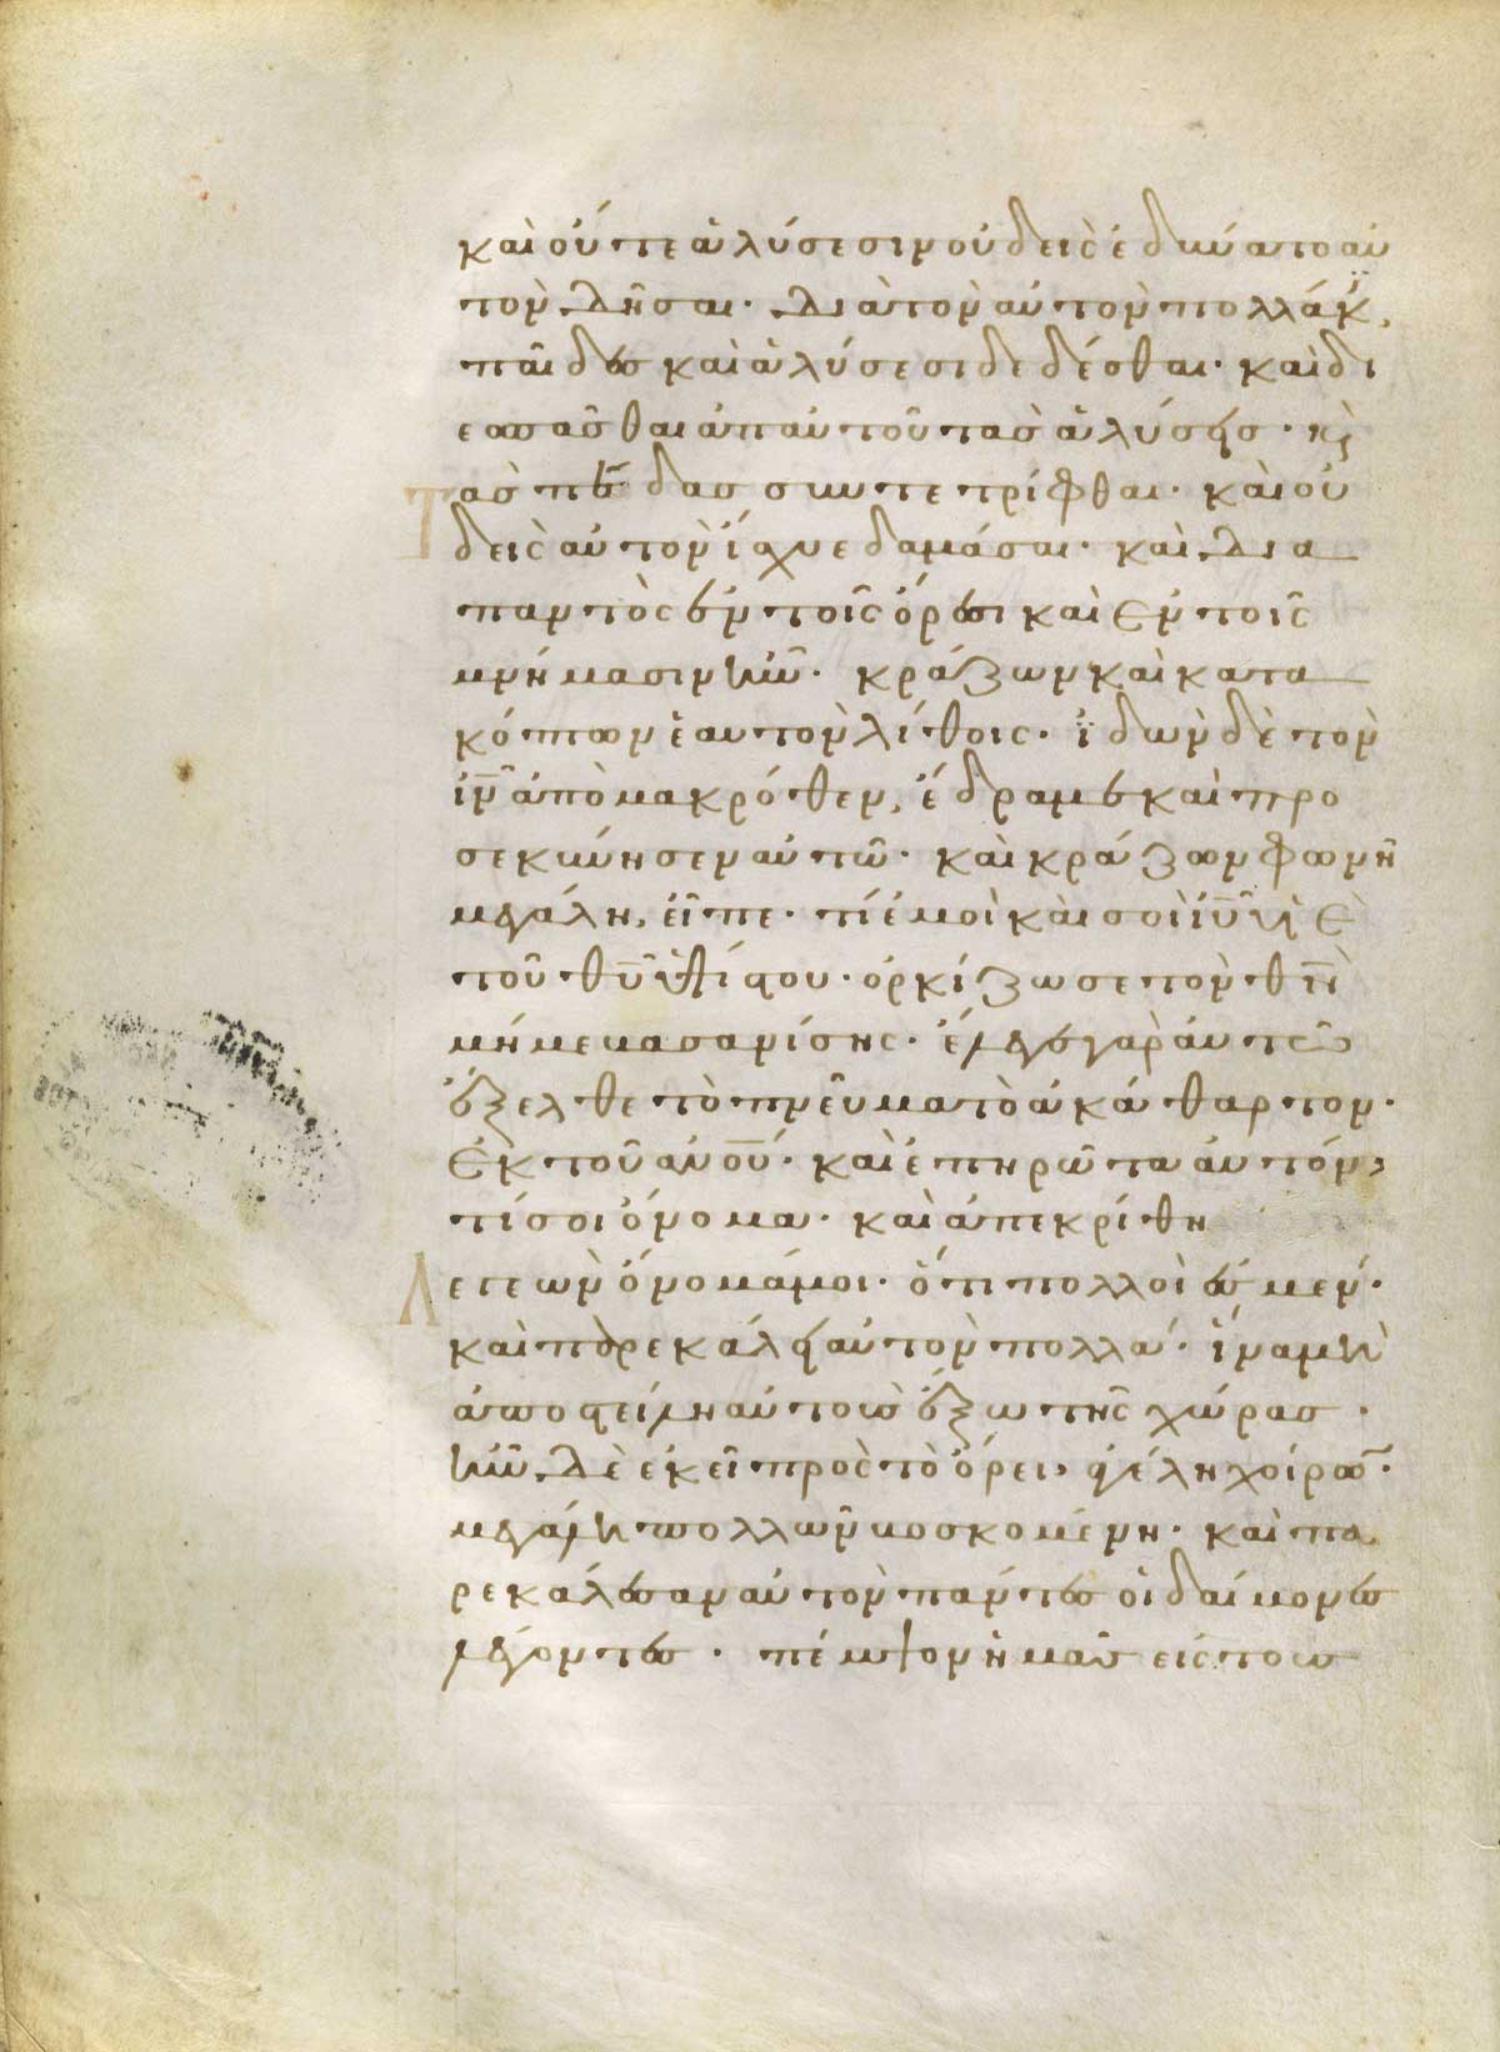 καὶ οὔτε ἁλύσεσιν οὐδεὶς ἐδύνατο αὐ
τὸν δῆσαι· διὰ τὸν αὐτὸν πολλάκ,
παῖδες καὶ ἁλύσεσι δεδέσθαι· καὶ δι
εσπᾶσθαι ἀπ αὐτοῦ τὰς ἁλύσεις· κὶ
Τὰς πέδας συντετρίφθαι· καὶ οὐ
δεὶς αὐτὸν ἴσχυε δαμάσαι· καὶ δια
παντὸς ἐν τοῖς ὄρεσι καὶ ἐν τοῖς
μνήμασιν ἦν· κράζων καὶ κατα
κόπτων ἑαυτὸν λίθοις· ἰδὼν δὲ τὸν
ἰν̅ ἀπὸ μακρόθεν, ἔδραμε καὶ προ
σεκύνησεν αὐτῶ· καὶ κράζων φωνῆ
μεγάλη, εἶπε· τί ἐμοὶ καὶ σοὶ ἰυ̅ υἱὲ
τοῦ θυ̅ ὑψίστου· ὁρκίζω σε τὸν θν̅
μή με βασανίσης· ἔλεγε γὰρ αὐτῶ
ἔξελθε τὸ πνεῦμα τὸ ἀκάθαρτον·
ἐκ τοῦ ἀνου̅· καὶ ἐπηρῶτα αὐτόν,
τί σοι ὄνομα· καὶ ἀπεκρίθη
Λεγεὼν ὄνομά μοι· ὅτι πολλοὶ ἐσμέν·
καὶ παρεκάλει αὐτὸν πολλά· ἵνα μὴ
ἀποστείλη αὐτοὺς ἔξω τῆς χώρας·
ἦν δὲ ἐκεῖ πρὸς τὸ ὄρει, ἀγέλη χοίρων·
μεγάλη πολλῶν βοσκομένη· καὶ πα
ρεκάλεσαν αὐτὸν πάντες οἱ δαίμονες
λέγοντες· πέμψον ἡμᾶς εἰς τοὺς